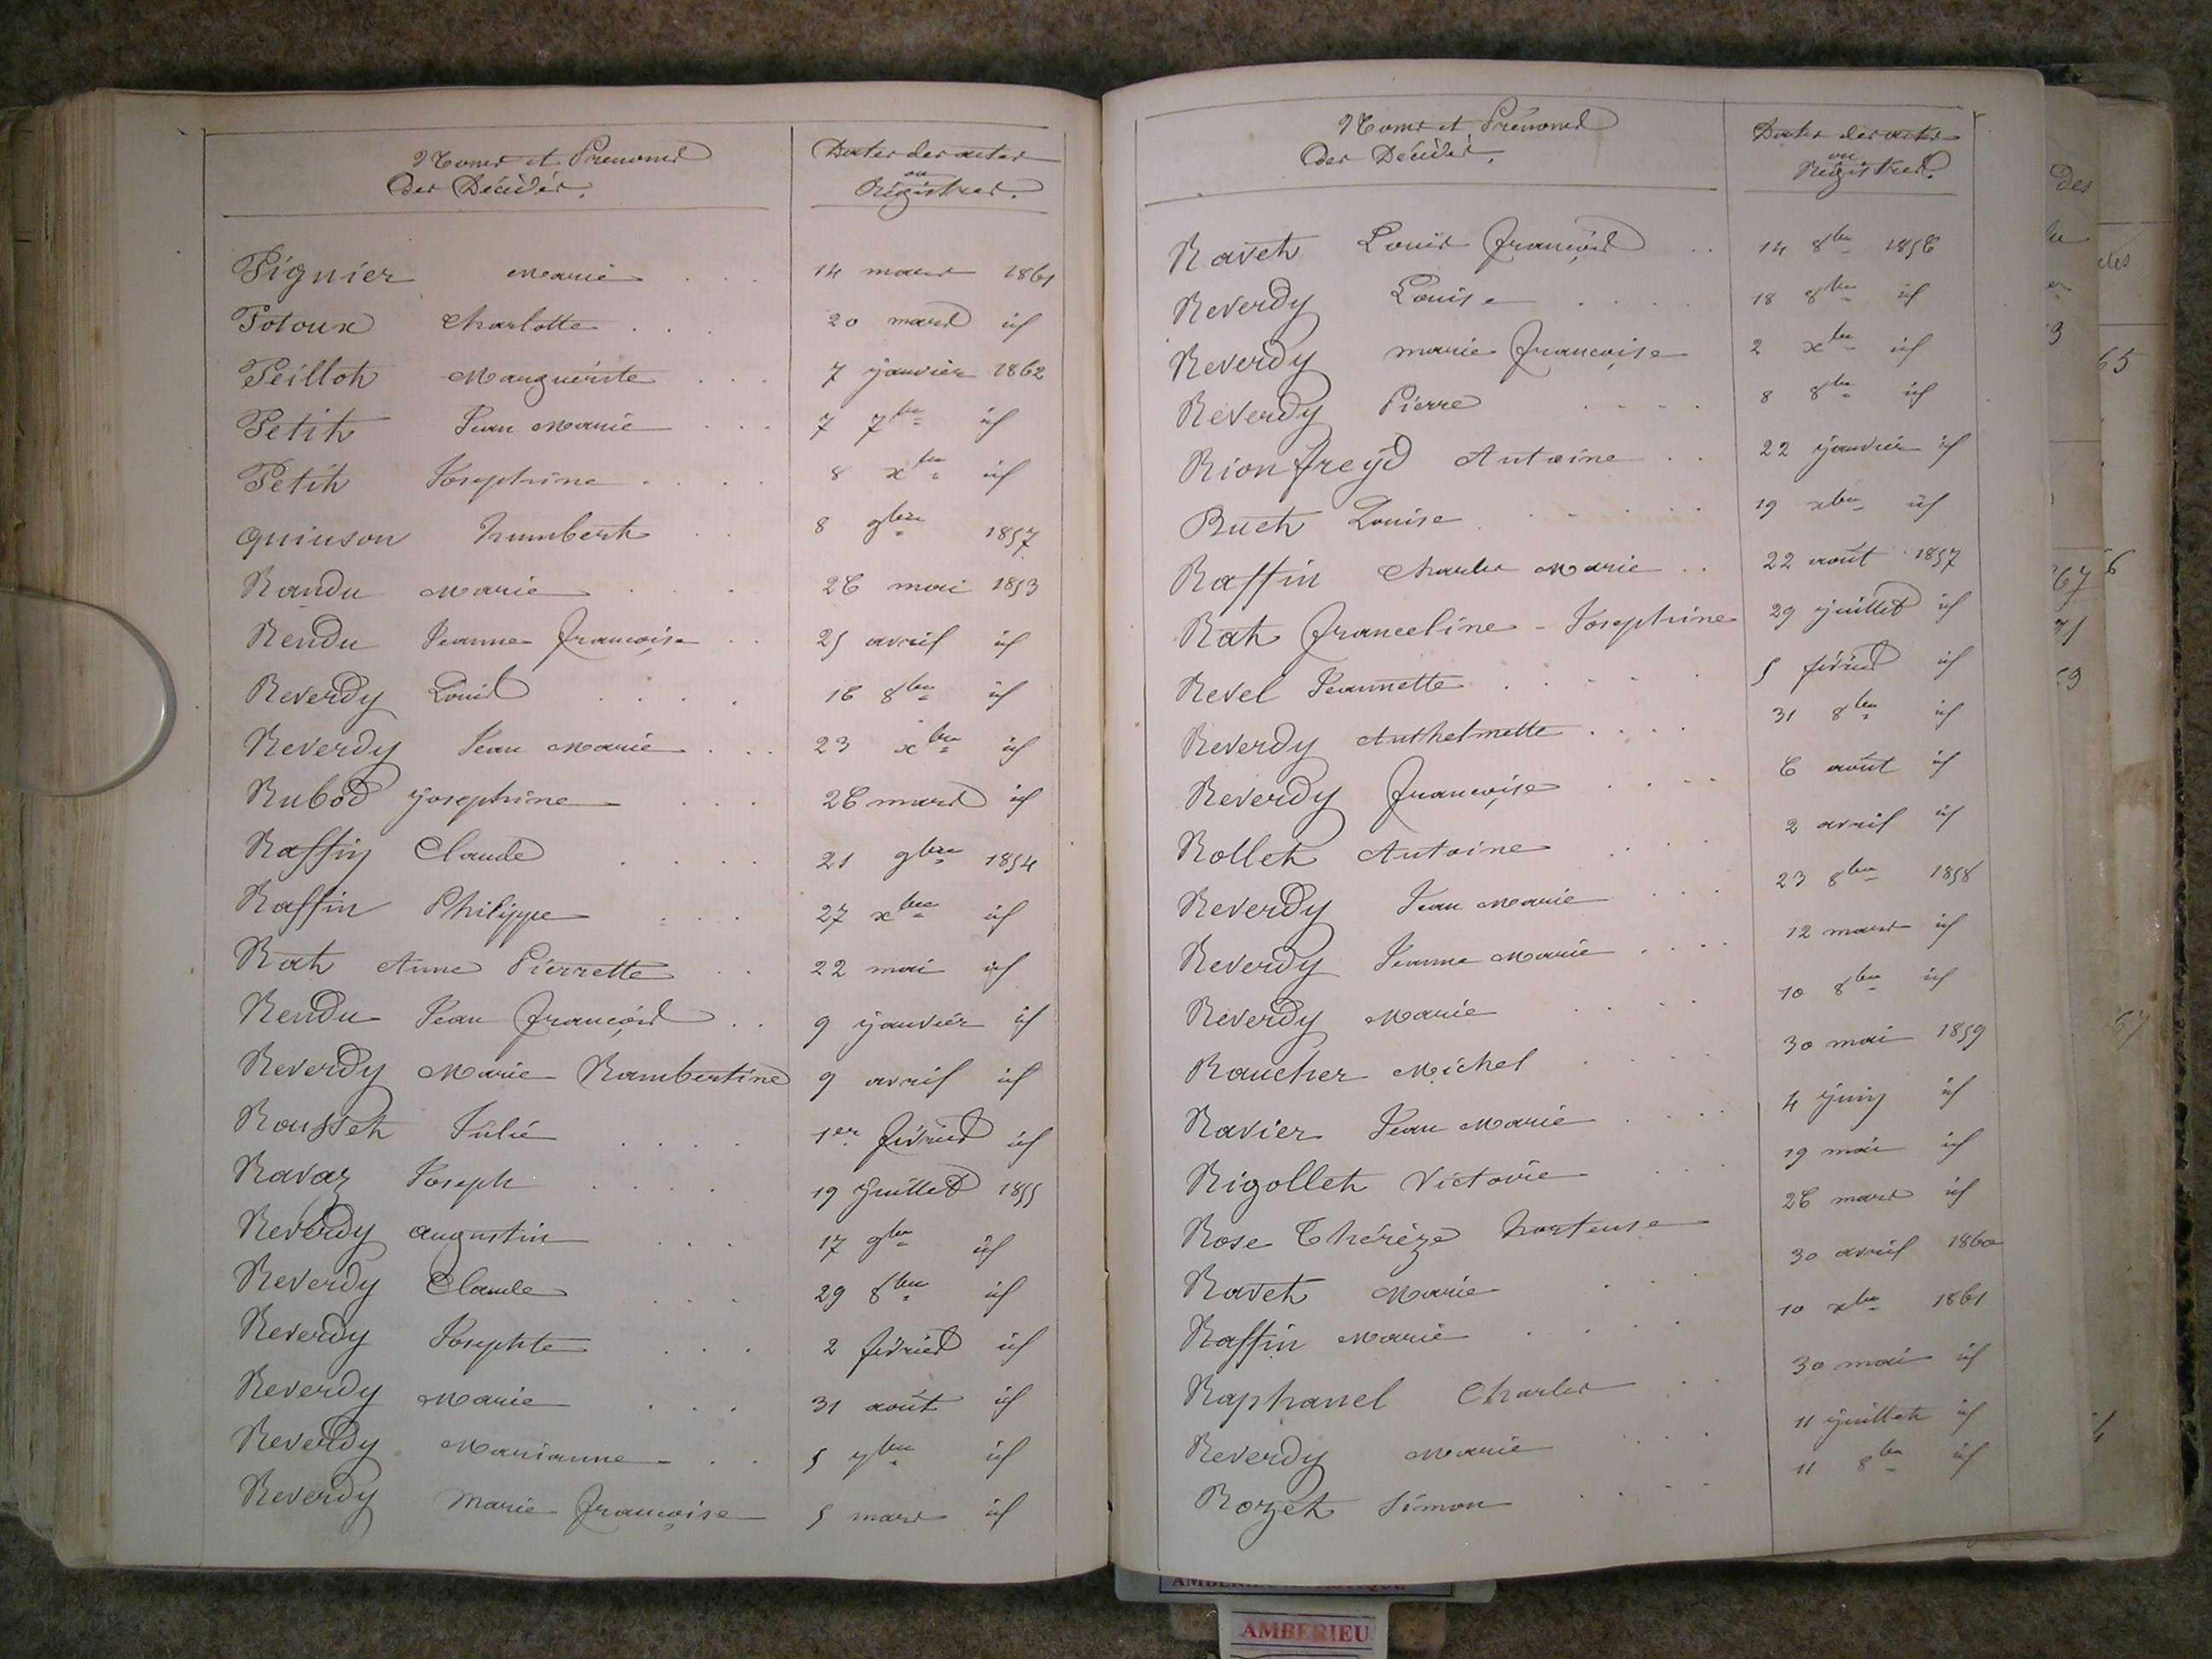 Noms et Prénoms
Des Décédés.
Dates des actes
ou
Régistres.
Pignier Marie . . . 14 mars 1861
Potoux Charlotte . . . 20 mars id
Peillot Marguerite . . . 7 janvier 1862
Petit Jean Marie . . . 7 7bre id
Petit Josephine . . . . 8 xbre id
Quinson humbert . . 8 9bre 1857
Randu Marie . . . 26 mai 1853
Rendu Jeanne Françoise . . 25 avril id
Reverdy Louis . . . . 16 8bre id
Reverdy Jean Marie . . . 23 xbre id
Rubod Josephine . . . 26 mars id
Raffin Claude . . . . 21 9bre 1854
Raffin Philippe . . . 27 xbre id
Rat Anne Pierrette . . 22 mai id
Rendu Jean François . . 9 janvier id
Reverdy Marie Rambertine 9 avril id
Rousset Julie . . . . 1er février id
Ravaz Joseph . . . . 19 juillet 1855
Reverdy augustin . . . 17 9bre id
Reverdy Claude . . . 29 8bre id
Reverdy Josephte . . . 2 février id
Reverdy Marie . . . 31 août id
Reverdy Marianne . . 5 7bre id
Reverdy Marie Françoise 5 mars id
Noms et Prénoms
Des Décédés.
Dates des actes
ou
Régistres.
Ravet Louis François . . 14 8bre 1856
Reverdy Louise . . . . 18 8bre id
Reverdy marie Françoise 2 xbre id
Reverdy Pierre . . . . 8 8bre id
Rionfreyd Antoine . . 22 janvier id
Ruet Louise . . . . . 19 xbre id
Raffin Charles Marie . . 22 août 1857
Rat Franceline - Josephine 29 juillet id
Revel Jeannette . . . . . 5 février id
Reverdy Anthelmette . . . . 31 8bre id
Reverdy Françoise . . . 6 août id
Rollet Antoine . . . 2 avril id
Reverdy Jean Marie . . . 23 8bre 1858
Reverdy Jeanne Marie . . . . 12 mars id
Reverdy Marie . . . 10 8bre id
Raucher Michel . . . . 30 mai 1859
Ravier Jean Marie . . . . 4 juin id
Rigollet Victorie . . . 19 mai id
Rose Thérèze hortense 26 mars id
Ravet Marie . . . 30 avril 1860
Raffin Marie . . . . 10 xbre 1861
Raphanel Charles . . 30 mai id
Reverdy Marie . . . 11 juillet id
Rozet Simon . . . . 11 8bre id
Des
des
65
67
AMBERIEU